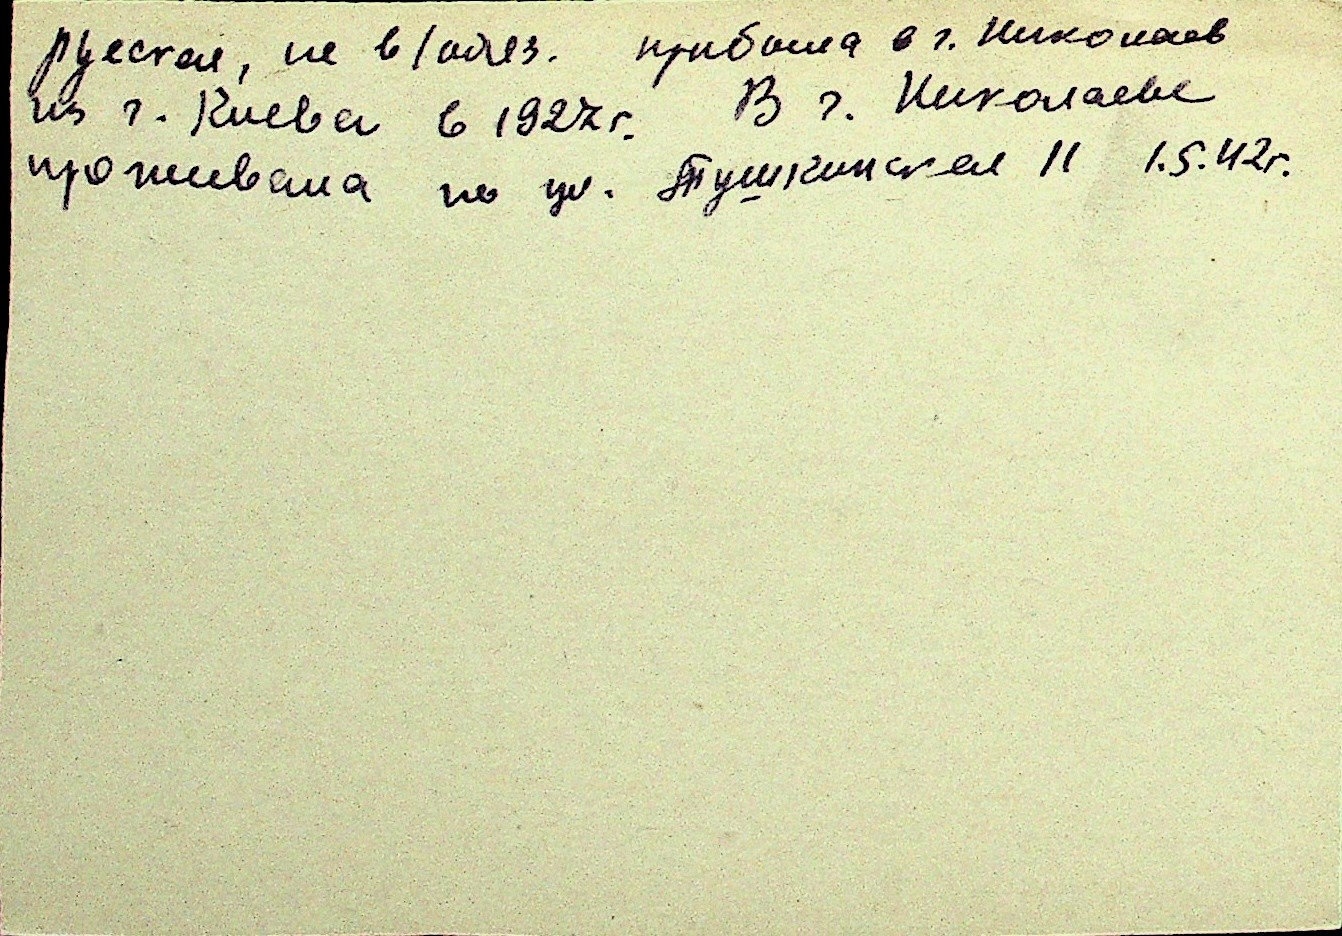 русская, не в/обяз. прибыла в г. Николаев
из г. Киева в 1927г. В г. Николаеве
проживала по ул. Пушкинская 11 1.5.42г.